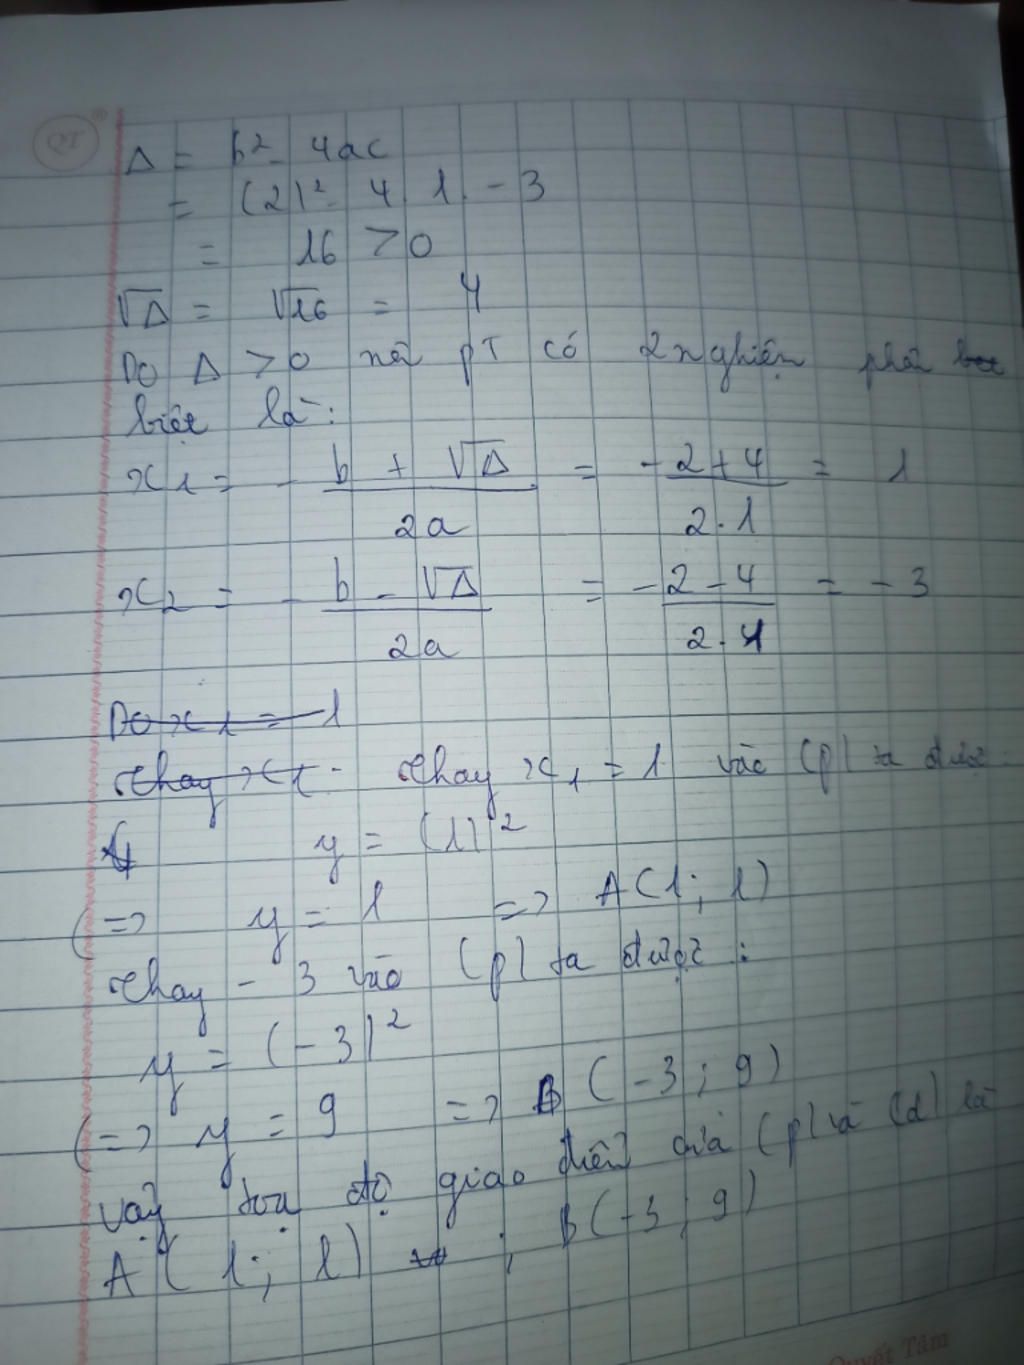 QT ®
Δ = b² - 4ac
= (2)² - 4 . 1 . - 3
= 16 > 0
√Δ = √16 = 4
Do Δ > 0 nên PT có 2 nghiệm phân
biệt là:
x₁ = - b + √Δ / 2a = - 2 + 4 / 2 . 1 = 1
x₂ = - b - √Δ / 2a = - 2 - 4 / 2 . 1 = - 3
Do x₁ = 1
Thay x₁ . Thay x₁ = 1 vào (P) ta được :
y = (1)²
(=> y = 1 => A (1 ; 1)
Thay - 3 vào (P) ta được :
y = (- 3)²
(=> y = 9 => B (- 3 ; 9)
Vậy tọa độ giao điểm của (P) và (d) là
A (1 ; 1) ; B (- 3 ; 9)
Quyết Tâm